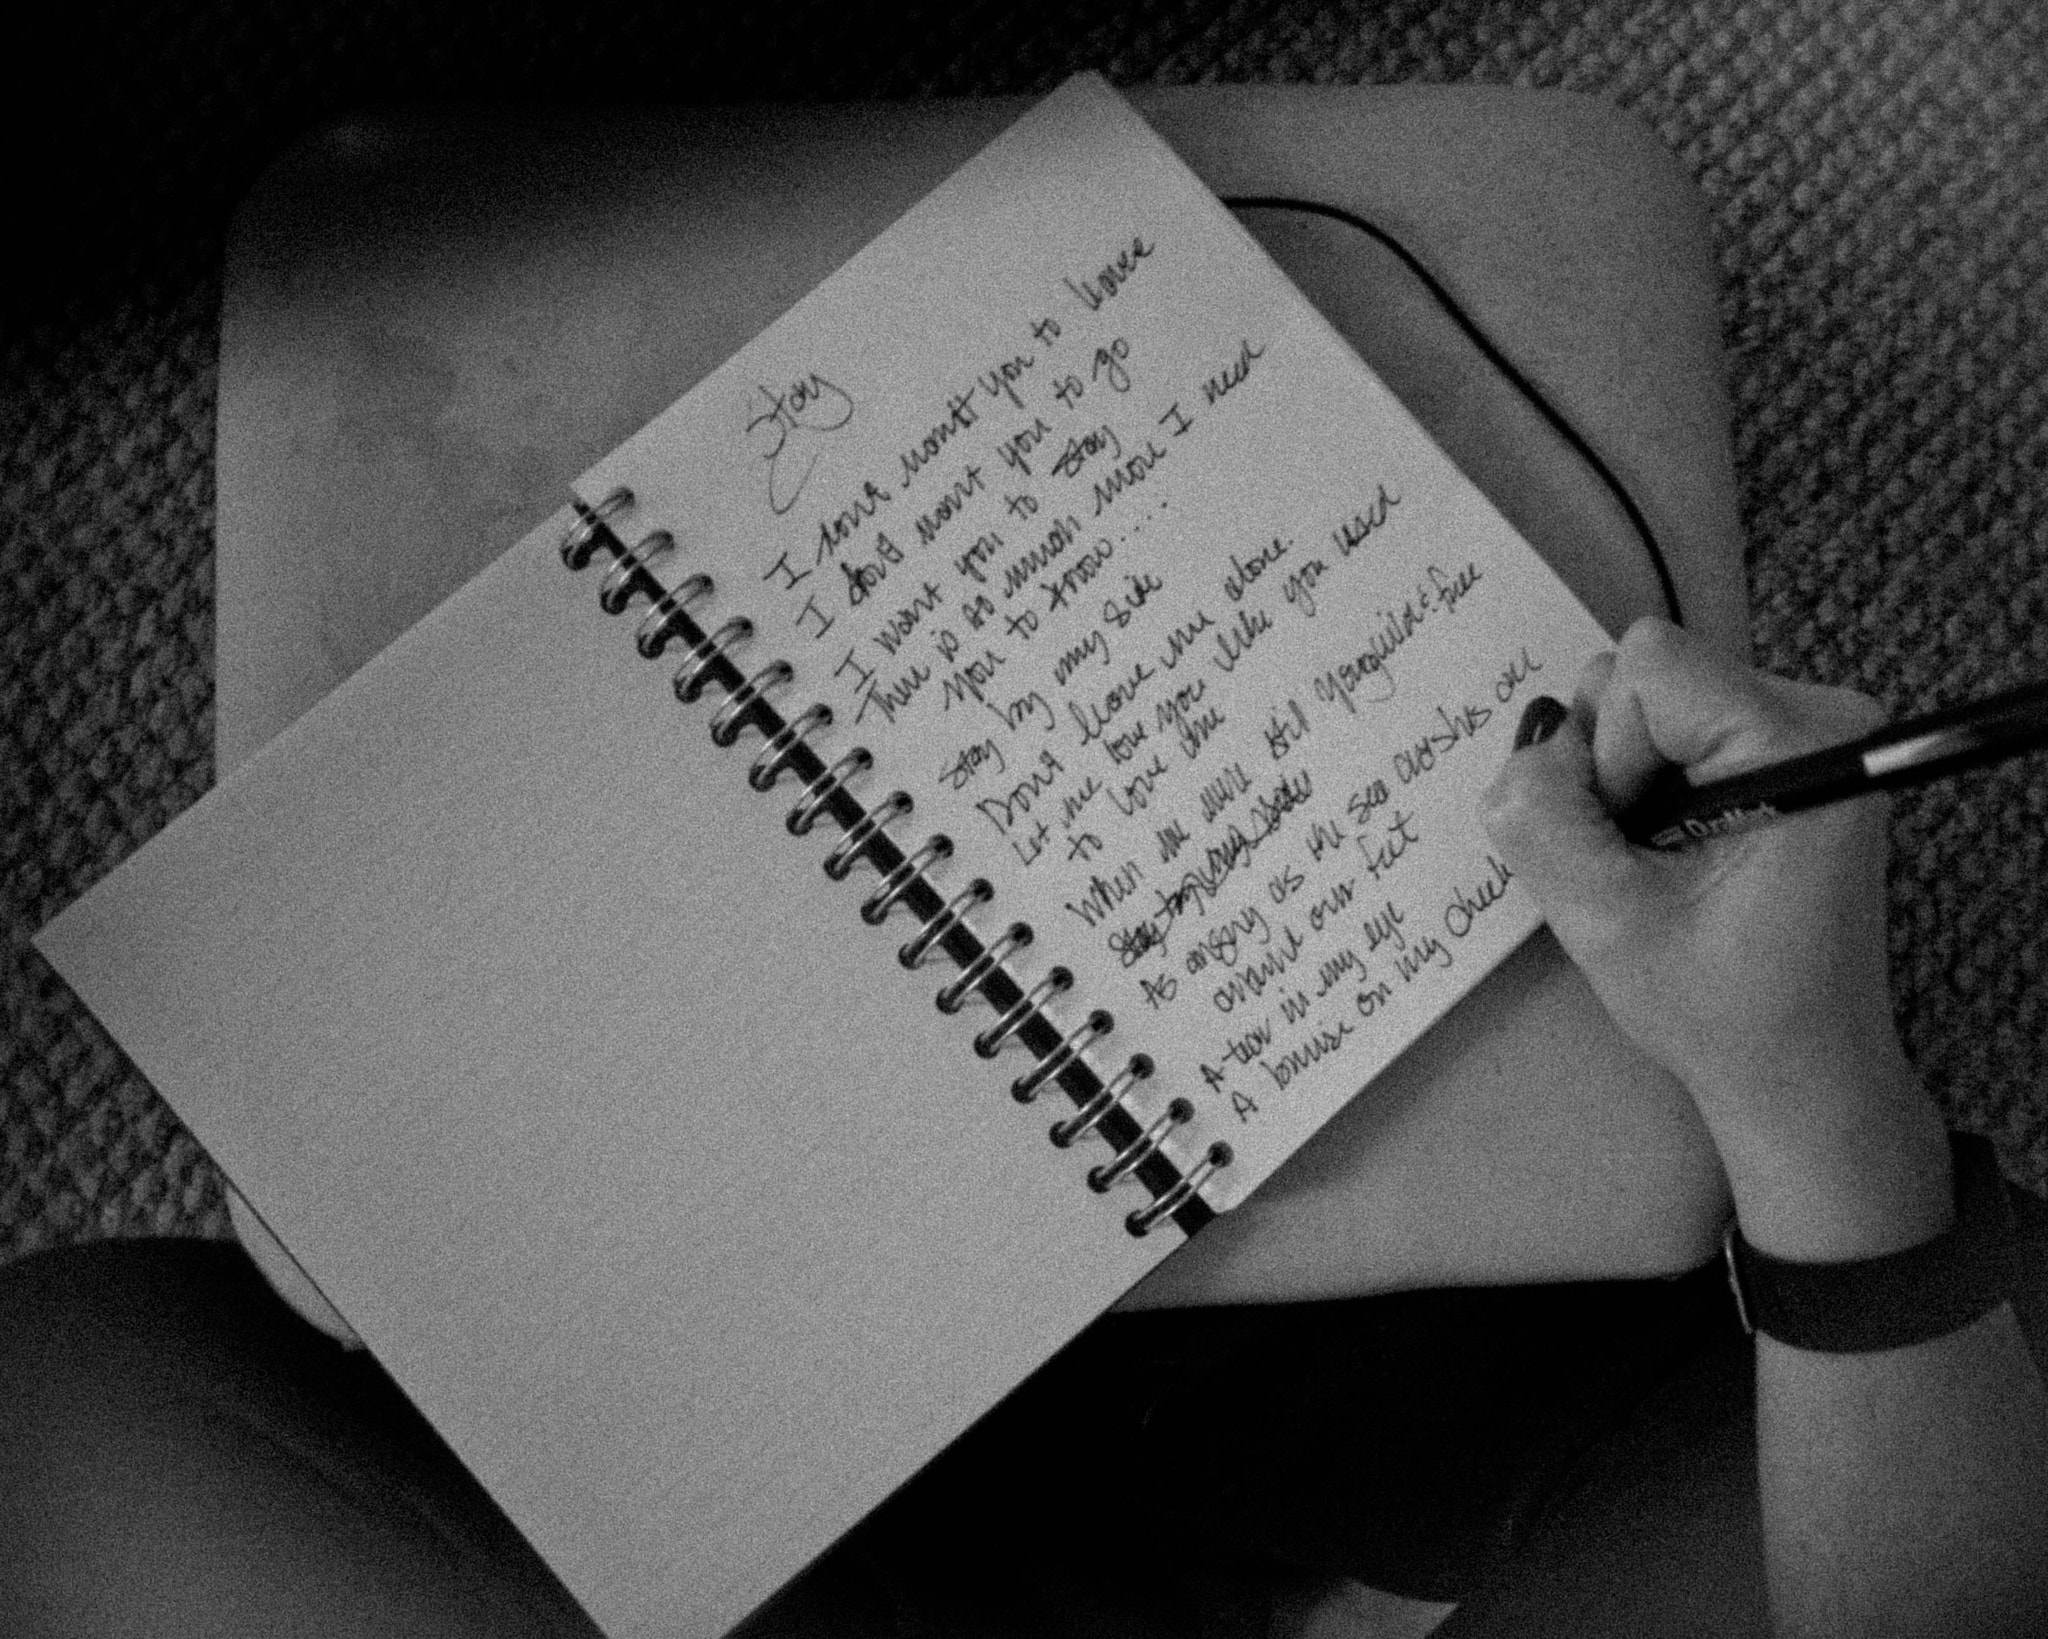 Stay
I dont want you to leave
I dont want you to go
I want you to stay
There is so much more I need
you to know....
Stay by my side
Dont leave me alone.
Let me love you like you used
to love me
When we were still young wild & free
Stay by my side
As angry as the sea crashes
around our feet
A tear in my eye
A bruise on my cheek